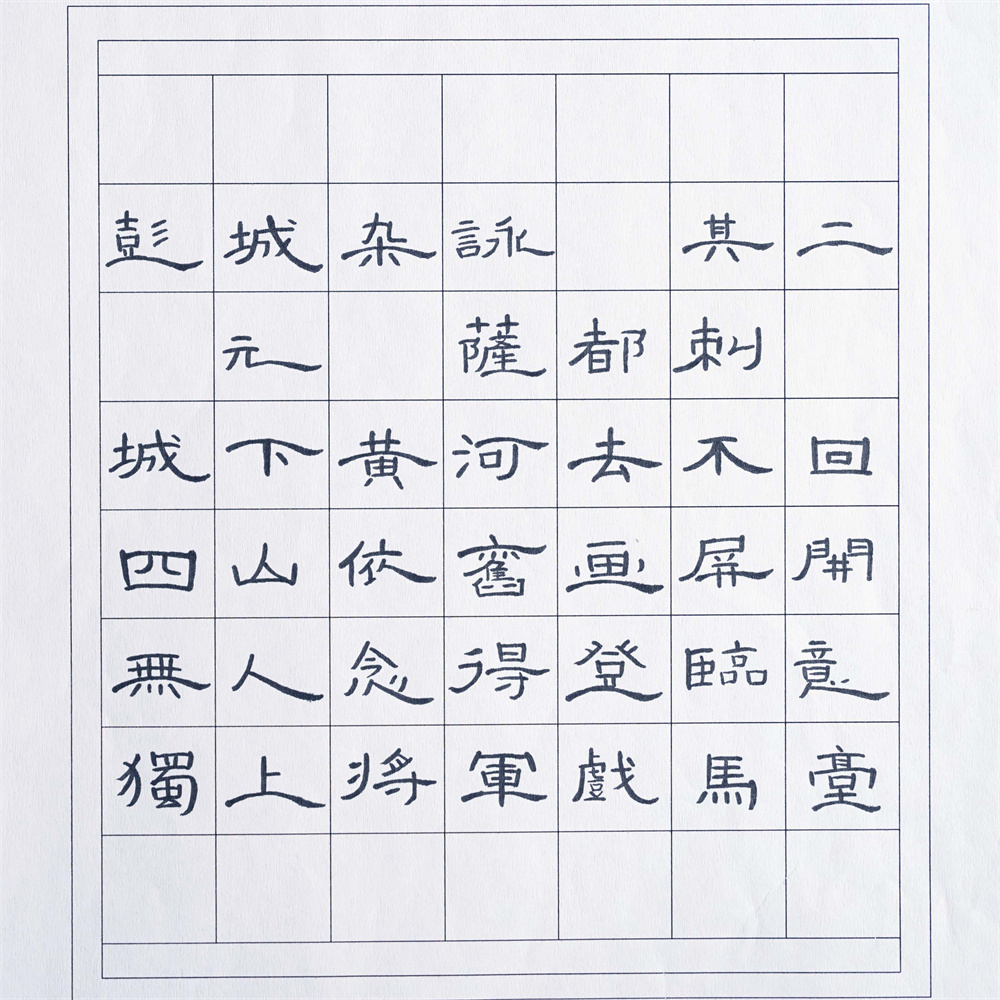 彭城杂詠 其二
元 薩都刺
城下黄河去不回
四山依舊画屏開
無人念得登臨意
獨上將軍戲馬臺